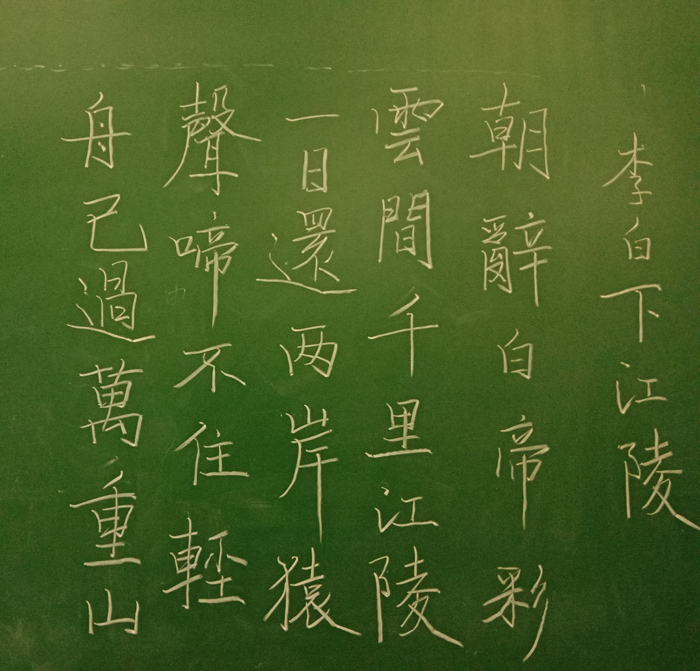 李白下江陵
朝辭白帝彩
雲間千里江陵
一日還两岸猿
聲啼不住輕
舟已過萬重山